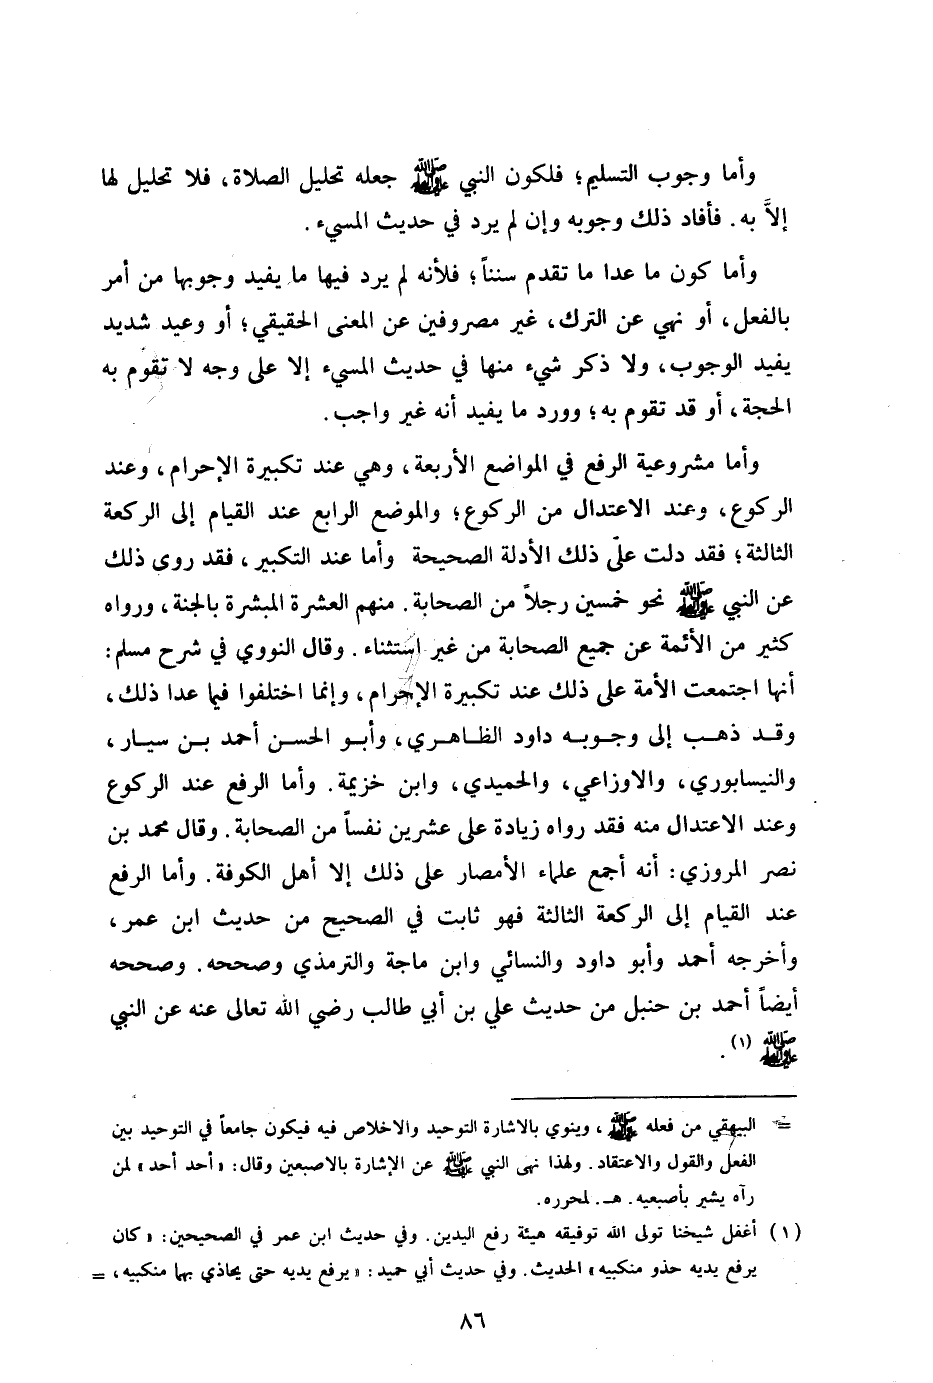 وأما وجوب التسليم؛ فلكون النبي ﷺ جعله تحليل الصلاة، فلا تحليل لها
إلاَّ به. فأفاد ذلك وجوبه وإن لم يرد في حديث المسيء.
وأما كون ما عدا ما تقدم سنناً؛ فلأنه لم يرد فيها ما يفيد وجوبها من أمر
بالفعل، أو نهي عن الترك، غير مصروفين عن المعنى الحقيقي؛ أو وعيد شديد
يفيد الوجوب، ولا ذكر شيء منها في حديث المسيء إلا على وجه لا تقوم به
الحجة، أو قد تقوم به؛ وورد ما يفيد أنه غير واجب.
وأما مشروعية الرفع في المواضع الأربعة، وهي عند تكبيرة الإحرام، وعند
الركوع، وعند الاعتدال من الركوع؛ والموضع الرابع عند القيام إلى الركعة
الثالثة؛ فقد دلت على ذلك الأدلة الصحيحة وأما عند التكبير، فقد روى ذلك
عن النبي ﷺ نحو خمسين رجلاً من الصحابة. منهم العشرة المبشرة بالجنة، ورواه
كثير من الأئمة عن جميع الصحابة من غير استثناء. وقال النووي في شرح مسلم:
أنها اجتمعت الأمة على ذلك عند تكبيرة الإحرام، وإنما اختلفوا فيما عدا ذلك،
وقد ذهب إلى وجوبه داود الظاهري، وأبو الحسن أحمد بن سيار،
والنيسابوري، والاوزاعي، والحميدي، وابن خزيمة. وأما الرفع عند الركوع
وعند الاعتدال منه فقد رواه زيادة على عشرين نفساً من الصحابة. وقال محمد بن
نصر المروزي: أنه أجمع علماء الأمصار على ذلك إلا أهل الكوفة. وأما الرفع
عند القيام إلى الركعة الثالثة فهو ثابت في الصحيح من حديث ابن عمر،
وأخرجه أحمد وأبو داود والنسائي وابن ماجة والترمذي وصححه. وصححه
أيضاً أحمد بن حنبل من حديث علي بن أبي طالب رضي الله تعالى عنه عن النبي
ﷺ (١).
= البيهقي من فعله ﷺ، وينوي بالاشارة التوحيد والاخلاص فيه فيكون جامعاً في التوحيد بين
الفعل والقول والاعتقاد. ولهذا نهى النبي ﷺ عن الإشارة بالاصبعين وقال: «أحد أحد» لمن
رآه يشير بأصبعيه. هـ. لمحرره.
(١) أغفل شيخنا تولى الله توفيقه هيئة رفع اليدين. وفي حديث ابن عمر في الصحيحين: «كان
يرفع يديه حذو منكبيه» الحديث. وفي حديث أبي حميد: «يرفع يديه حتى يحاذي بهما منكبيه، =
٨٦